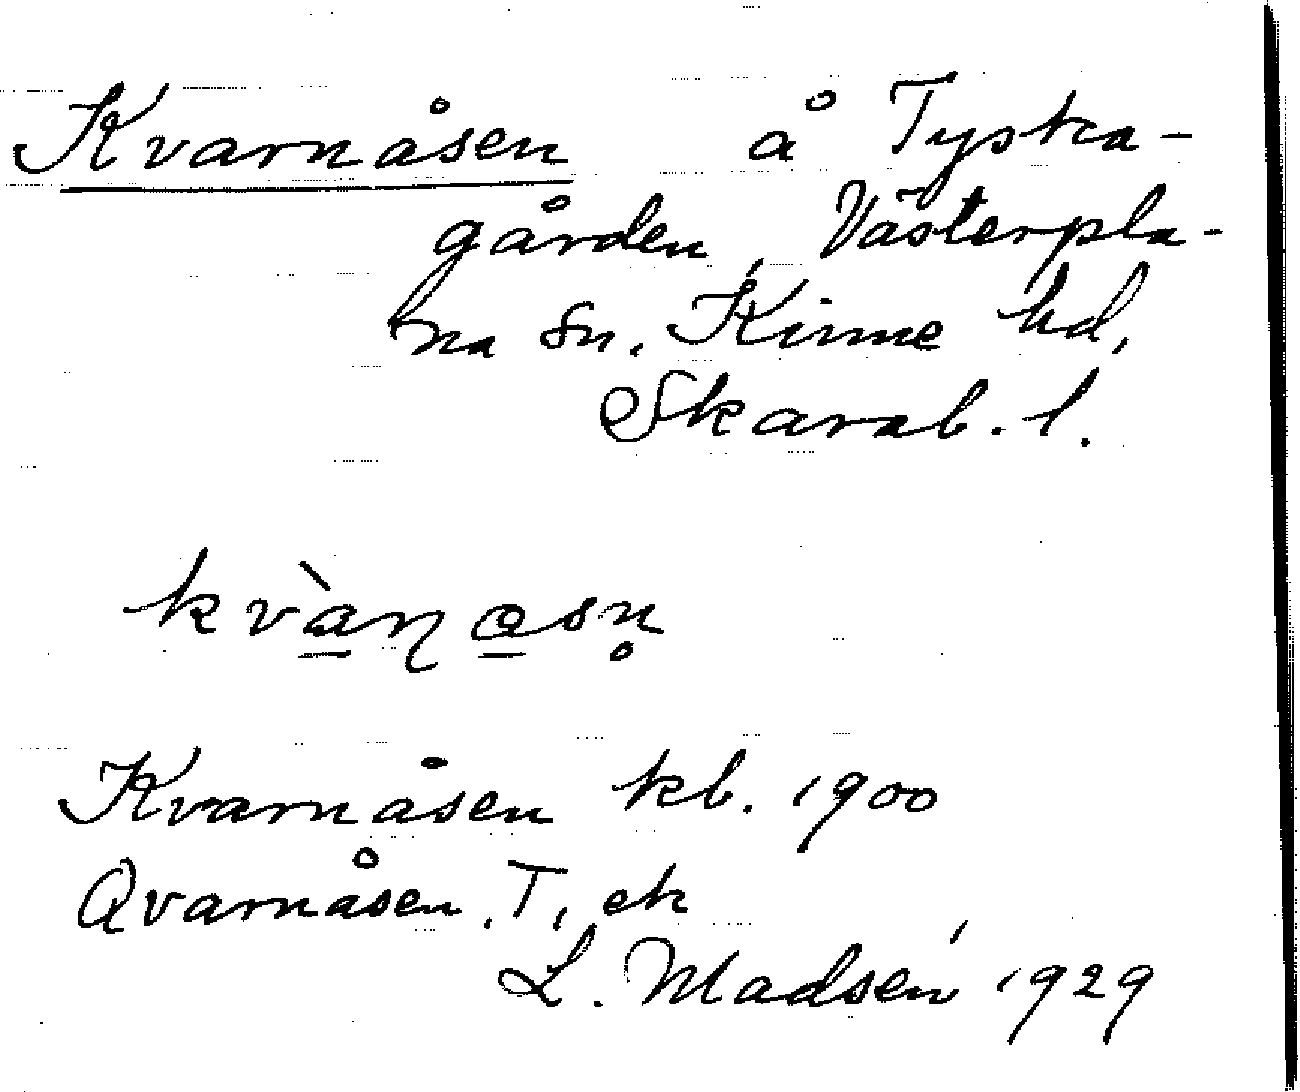 Kvarnåsen å Tyska-
gården, Västerpla-
na sn. Kinne hd,
Skarab. l.
kvàn̠ɑsn̥
Kvarnåsen kb. 1900
Qvarnåsen. T, ek
L. Madsén 1929